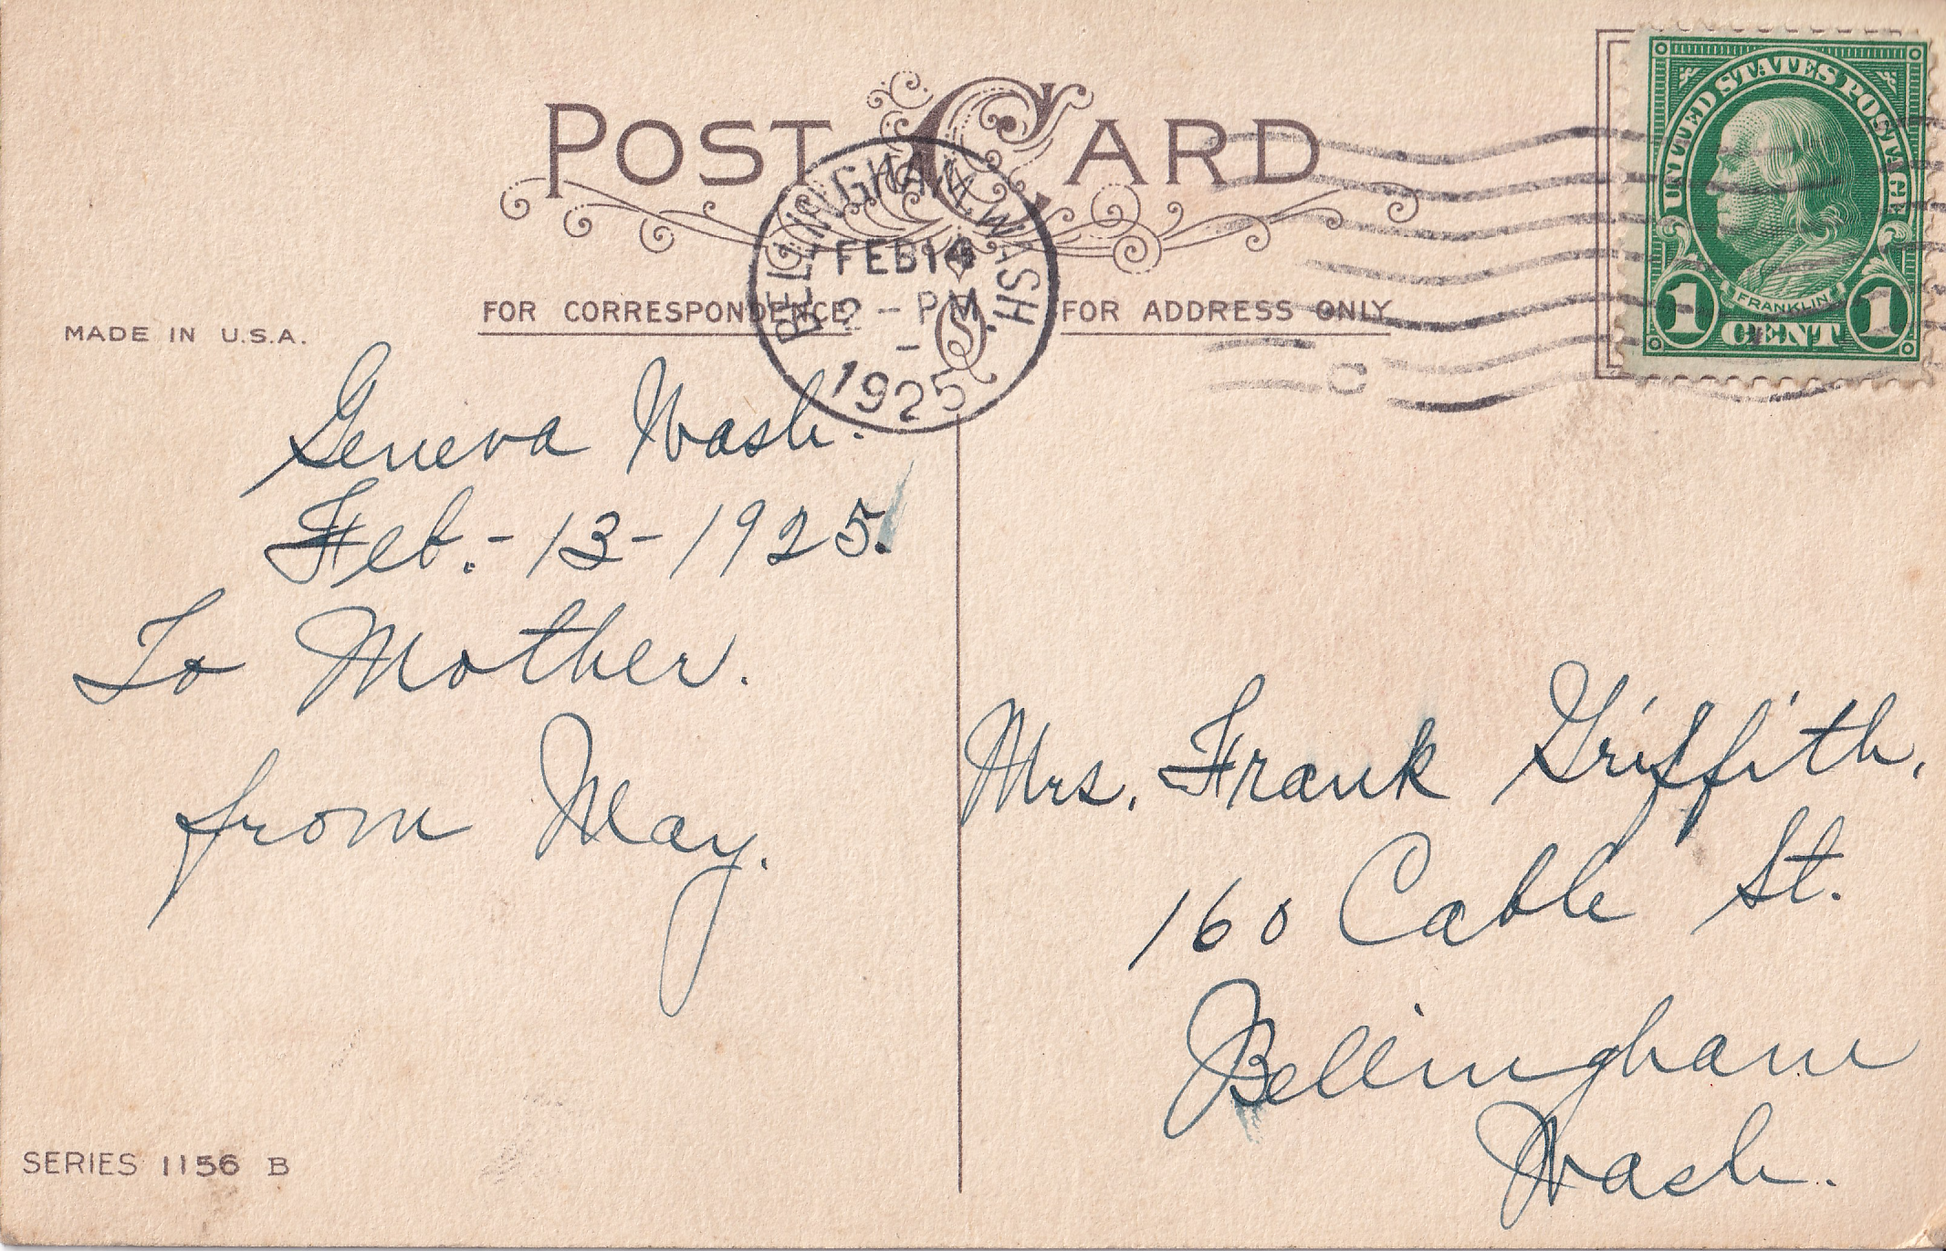 POST CARD
BELLINGHAM, WASH.
FEB 14
2 - PM
1925
UNITED STATES POSTAGE
FRANKLIN
1 CENT 1
FOR CORRESPONDENCE
FOR ADDRESS ONLY
MADE IN U.S.A.
Geneva Wash.
Feb.-13-1925.
To Mother.
from May.
Mrs. Frank Griffith,
160 Cable St.
Bellingham
Wash.
SERIES 1156 B